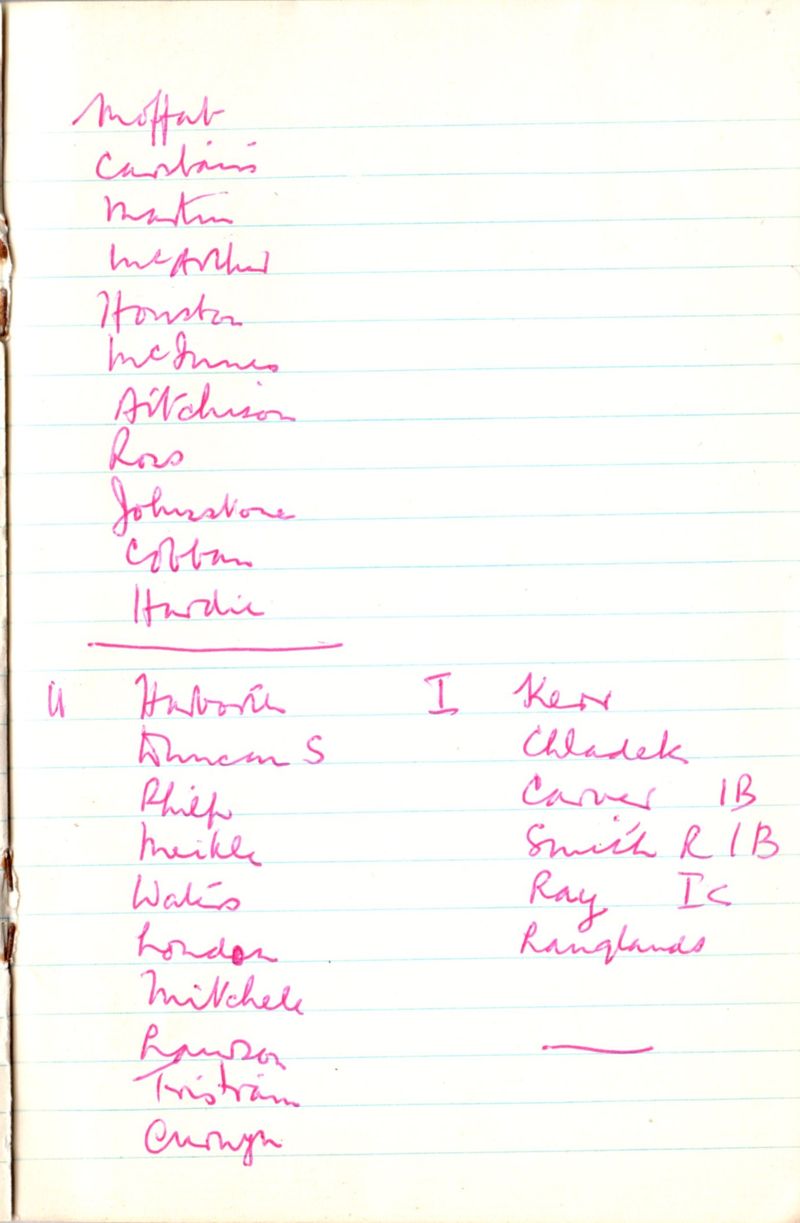 Moffat
Carstairs
Martin
McArthur
Houston
McInnes
Aitchison
Ross
Johnstone
Cobban
Hardie
U
Duncan S
Philp
Meikle
Waters
London
Mitchell
Lawson
Tristram
I Kerr
Chladek
Carver 1B
Smith R 1B
Ray Ic
Langlands